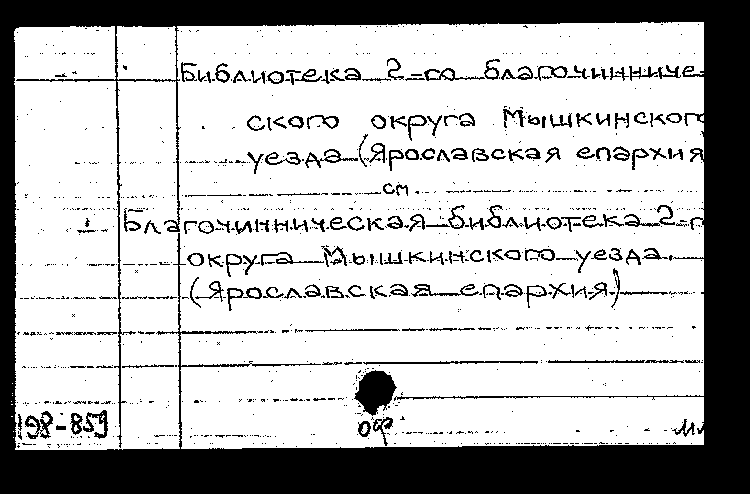 Библиотека 2-го благочинниче-
ского округа Мышкинского
уезда (Ярославская епархия)
см.
Благочинническая библиотека 2-г
округа Мышкинского уезда.
(Ярославская епархия)
198-859